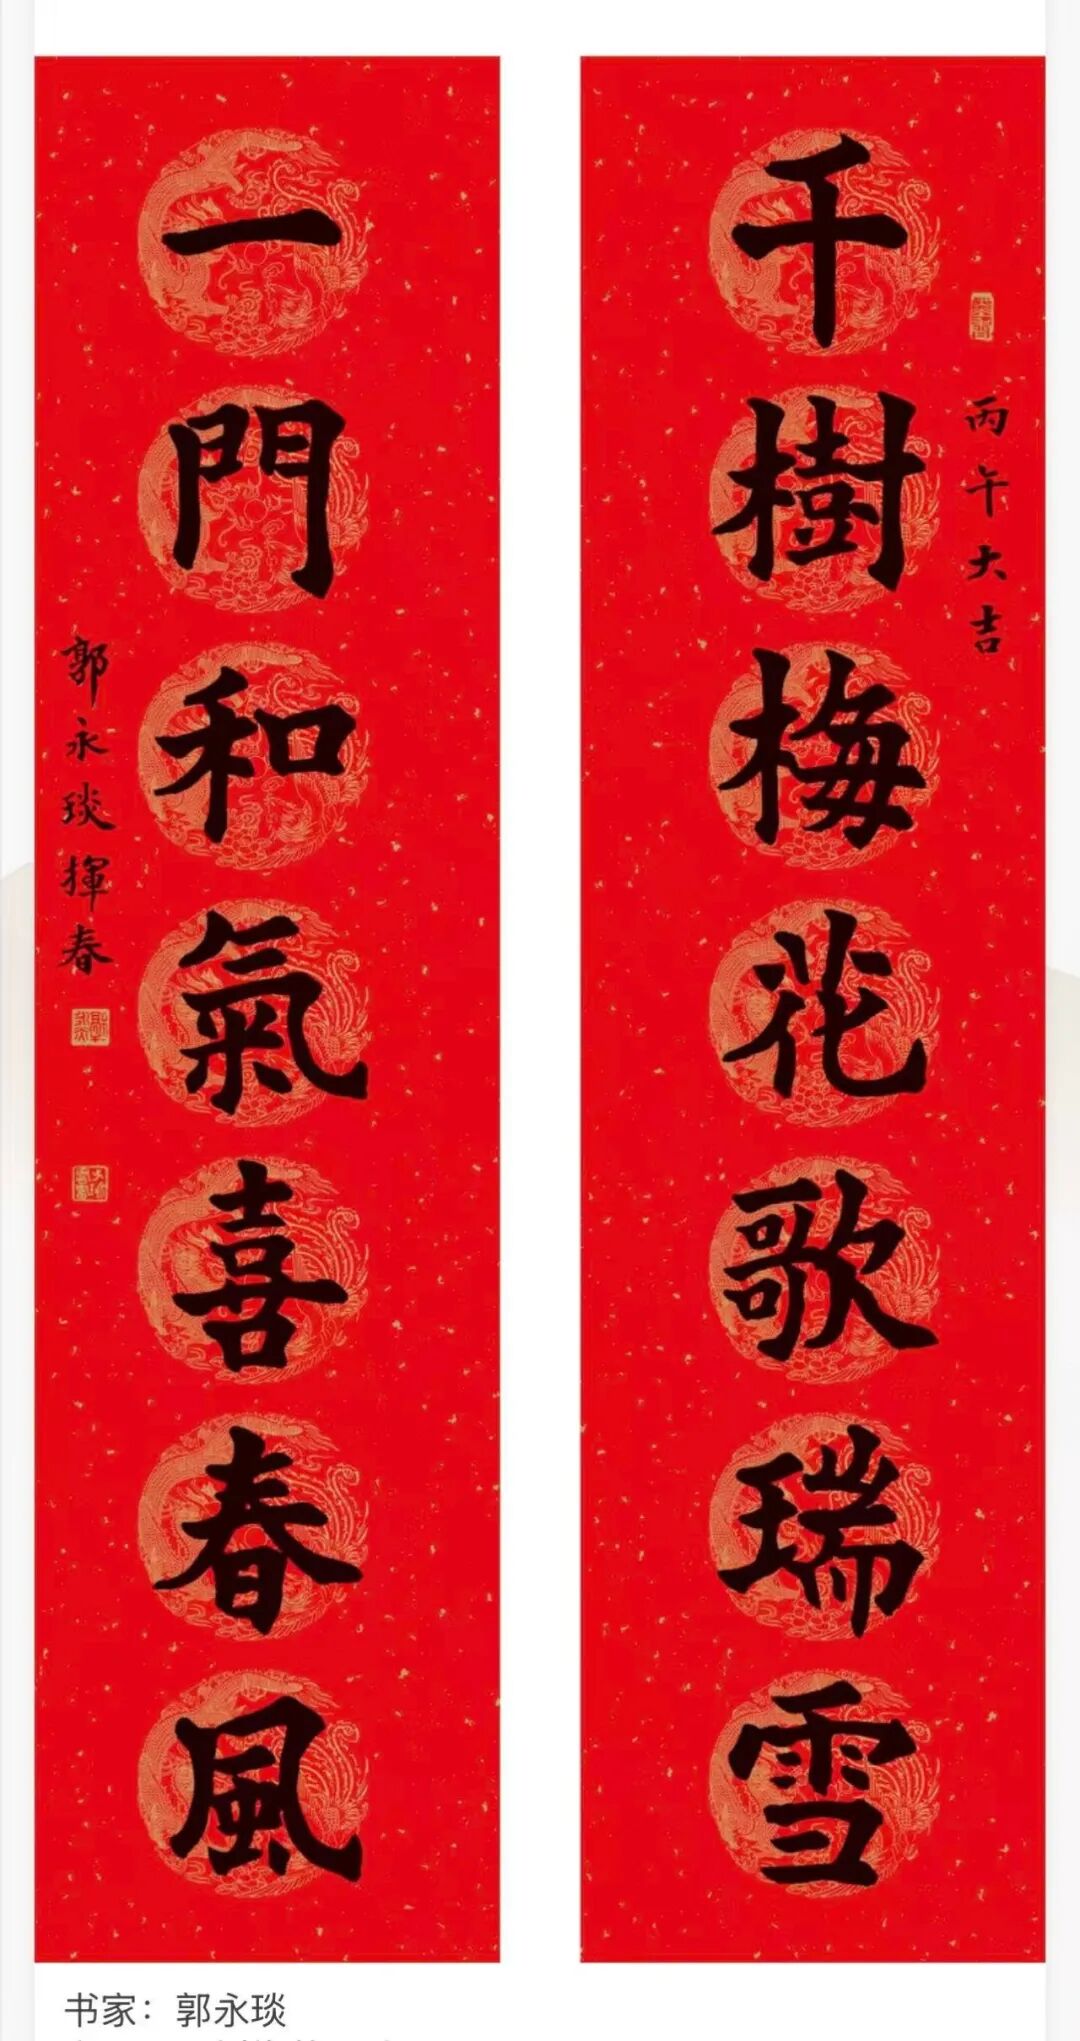 千樹梅花歌瑞雪
丙午大吉
一門和氣喜春風
郭永琰揮春
书家：郭永琰